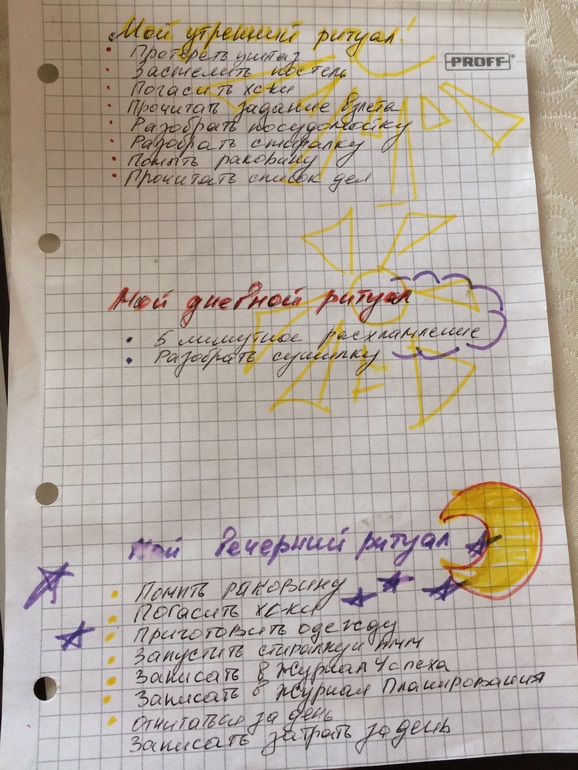 Мой утренний ритуал!
Протереть унитаз
PROFF®
Застелить постель
Погасить хоки
Прочитать задание взлёта
Разобрать посудомойку
Разобрать стиралку
Помыть раковину
Прочитать список дел
Мой дневной ритуал
5 минутное расхламление
Разобрать сушилку
Мой Вечерний ритуал
Помыть раковину
Погасить хоки
Приготовить одежду
Запустить стиралку и
Записать в Журнал Успеха
Записать в Журнал Планирования
Отчитаться за день
Записать затраты за день